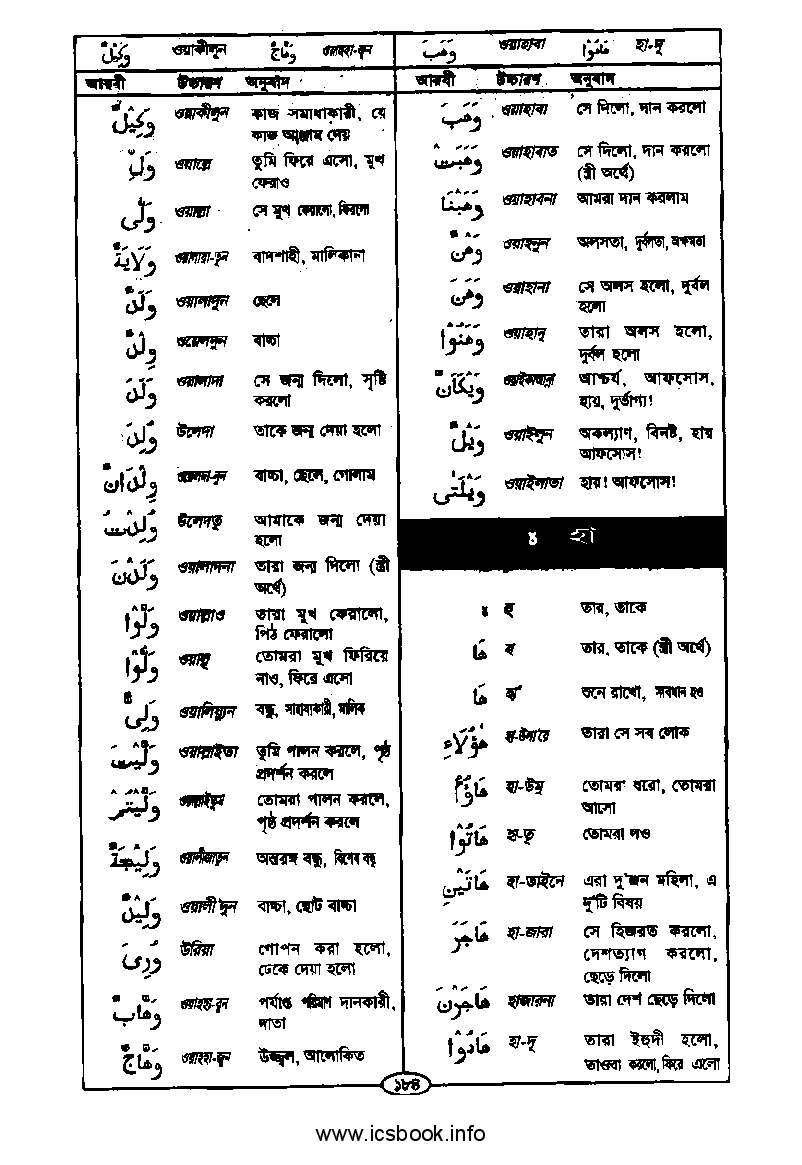 وَكِيْلٌ ওয়াকীলুন وَهَّاجٌ ওয়াহহা-জুন
আরবী উচ্চারণ অনুবাদ
وَكِيْلٌ ওয়াকীলুন কাজ সমাধাকারী, যে
কাজ আঞ্জাম দেয়
وَلِّ ওয়াল্লে তুমি ফিরে এসো, মুখ
ফেরাও
وَلّٰى ওয়াল্লা সে মুখ ফেরালো, ফিরলো
وَلَايَةٌ ওয়ালায়া-তুন বাদশাহী, মালিকানা
وَلَدٌ ওয়ালাদুন ছেলে
وِلْدٌ ওয়েলদুন বাচ্চা
وَلَدَ ওয়ালাদা সে জন্ম দিলো, সৃষ্টি
করলো
وُلِدَ উলেদা তাকে জন্ম দেয়া হলো
وِلْدَانٌ ওয়েলদা-নুন বাচ্চা, ছেলে, গোলাম
وُلِدْتُ উলেদতু আমাকে জন্ম দেয়া
হলো
وَلَدْنَ ওয়ালাদনা তারা জন্ম দিলো (স্ত্রী
অর্থে)
وَلَّوْا ওয়াল্লাও তারা মুখ ফেরালো,
পিঠ ফেরালো
وَلُّوْا ওয়াল্লু তোমরা মুখ ফিরিয়ে
নাও, ফিরে এসো
وَلِىٌّ ওয়ালিয়্যুন বন্ধু, সাহায্যকারী, মালিক
وَلَّيْتَ ওয়াল্লাইতা তুমি পালন করলে, পৃষ্ঠ
প্রদর্শন করলে
وَلَّيْتُمْ ওয়াল্লাইতুম তোমরা পালন করলে,
পৃষ্ঠ প্রদর্শন করলে
وَلِيْجَةٌ ওয়ালীজাতুন অন্তরঙ্গ বন্ধু, বিশেষ বন্ধু
وَلِيْدٌ ওয়ালীদুন বাচ্চা, ছোট বাচ্চা
وُرِىَ উরিয়া গোপন করা হলো,
ঢেকে দেয়া হলো
وَهَّابٌ ওয়াহহা-বুন পর্যাপ্ত পরিমাণ দানকারী,
দাতা
وَهَّاجٌ ওয়াহহা-জুন উজ্জ্বল, আলোকিত
وَهَبَ ওয়াহাবা هَادُوْا হা-দূ
আরবী উচ্চারণ অনুবাদ
وَهَبَ ওয়াহাবা সে দিলো, দান করলো
وَهَبَتْ ওয়াহাবাত সে দিলো, দান করলো
(স্ত্রী অর্থে)
وَهَبْنَا ওয়াহাবনা আমরা দান করলাম
وَهْنٌ ওয়াহনুন অলসতা, দুর্বলতা, অক্ষমতা
وَهَنَ ওয়াহানা সে অলস হলো, দুর্বল
হলো
وَهَنُوْا ওয়াহানু তারা অলস হলো,
দুর্বল হলো
وَيْكَاَنَّ ওয়াইকাআন্না আশ্চর্য, আফসোস,
হায়, দুর্ভাগ্য!
وَيْلٌ ওয়াইলুন অকল্যাণ, বিনষ্ট, হায়
আফসোস!
وَيْلَتٰى ওয়াইলাতা হায়! আফসোস!
ه হা
ه হু তার, তাকে
هَا হা তার, তাকে (স্ত্রী অর্থে)
هَا হা শুনে রাখো, সাবধান হও
هٰؤُلَاءِ হা-উলায়ে তারা সে সব লোক
هَاؤُمُ হা-উমু তোমরা ধরো, তোমরা
আনো
هَاتُوْا হা-তূ তোমরা দাও
هَاتَيْنِ হা-তাইনে এরা দু'জন মহিলা, এ
দু'টি বিষয়
هَاجَرَ হা-জারা সে হিজরত করলো,
দেশত্যাগ করলো,
ছেড়ে দিলো
هَاجَرْنَ হাজারনা তারা দেশ ছেড়ে দিলো
هَادُوْا হা-দূ তারা ইহুদী হলো,
তাওবা করলো, ফিরে এলো
১৮৪
www.icsbook.info